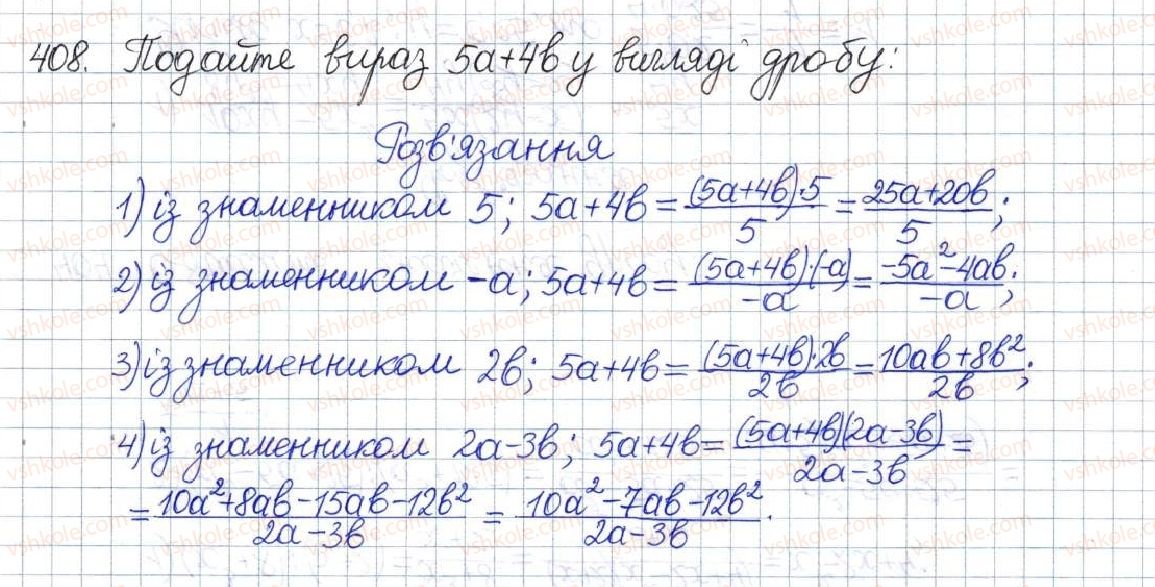 408. Подайте вираз 5а+4в у вигляді дробу:
Розв'язання
1) із знаменником 5; 5а+4в = (5а+4в)·5/5 = 25а+20в/5;
2) із знаменником -а; 5а+4в = (5а+4в)·(-а)/-а = -5а²-4ав/-а;
3) із знаменником 2в; 5а+4в = (5а+4в)·2в/2в = 10ав+8в²/2в;
4) із знаменником 2а-3в; 5а+4в = (5а+4в)(2а-3в)/2а-3в =
= 10а²+8ав-15ав-12в²/2а-3в = 10а²-7ав-12в²/2а-3в.